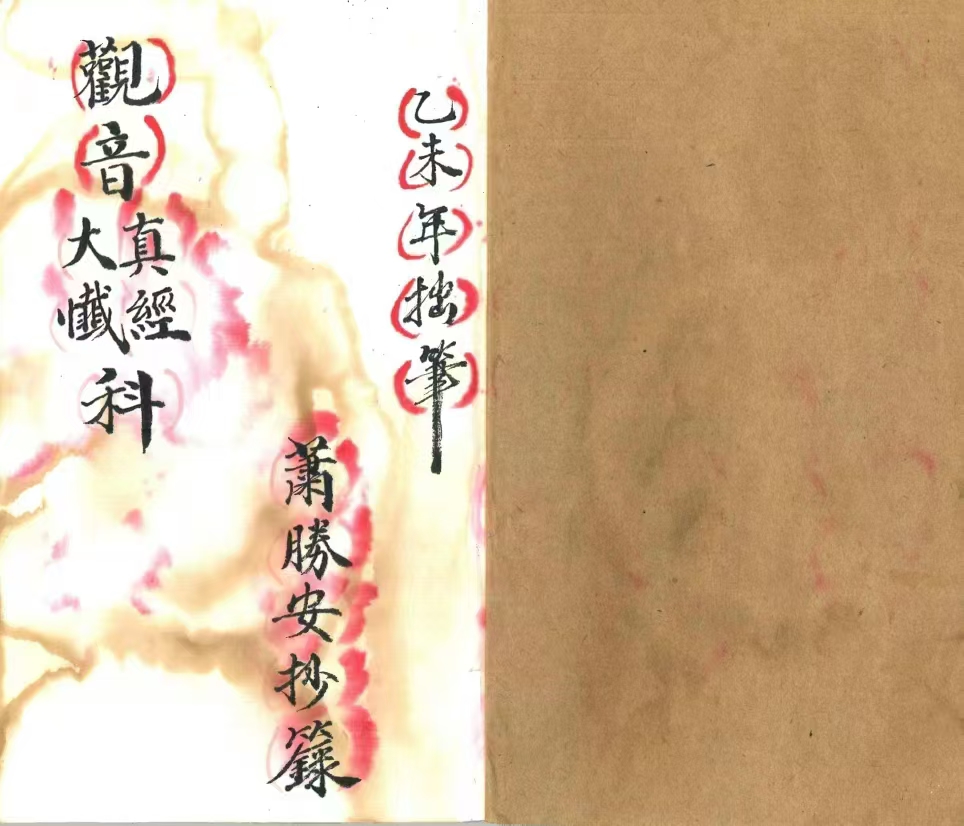 乙未年拙筆
蕭勝安抄籙
觀音真經大懺科